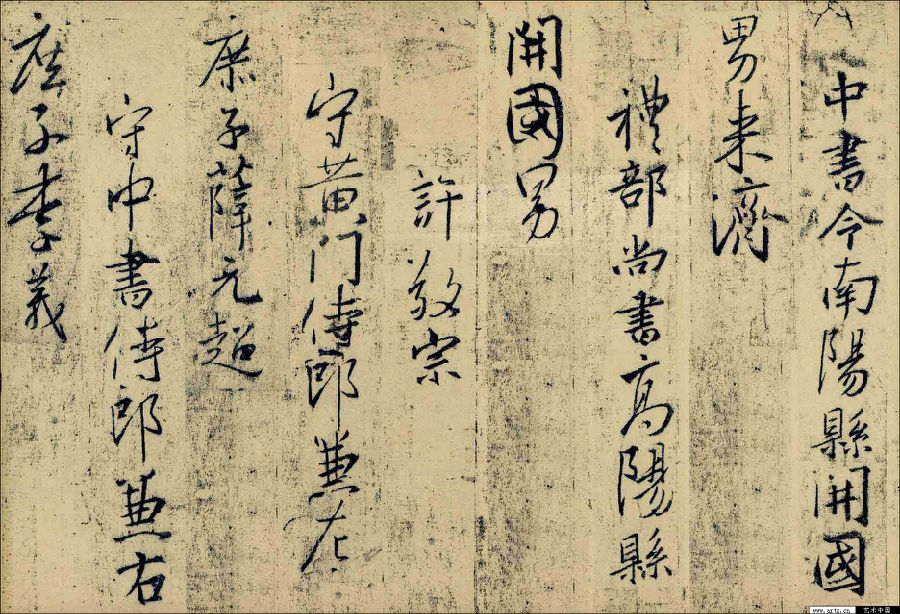 中書令南陽縣開國
男来濟
禮部尚書高陽縣
開國男
許敬宗
守黄门侍郎兼左
庶子薛元超
守中書侍郎兼右
庶子李義
www.artx.cn 艺术中国